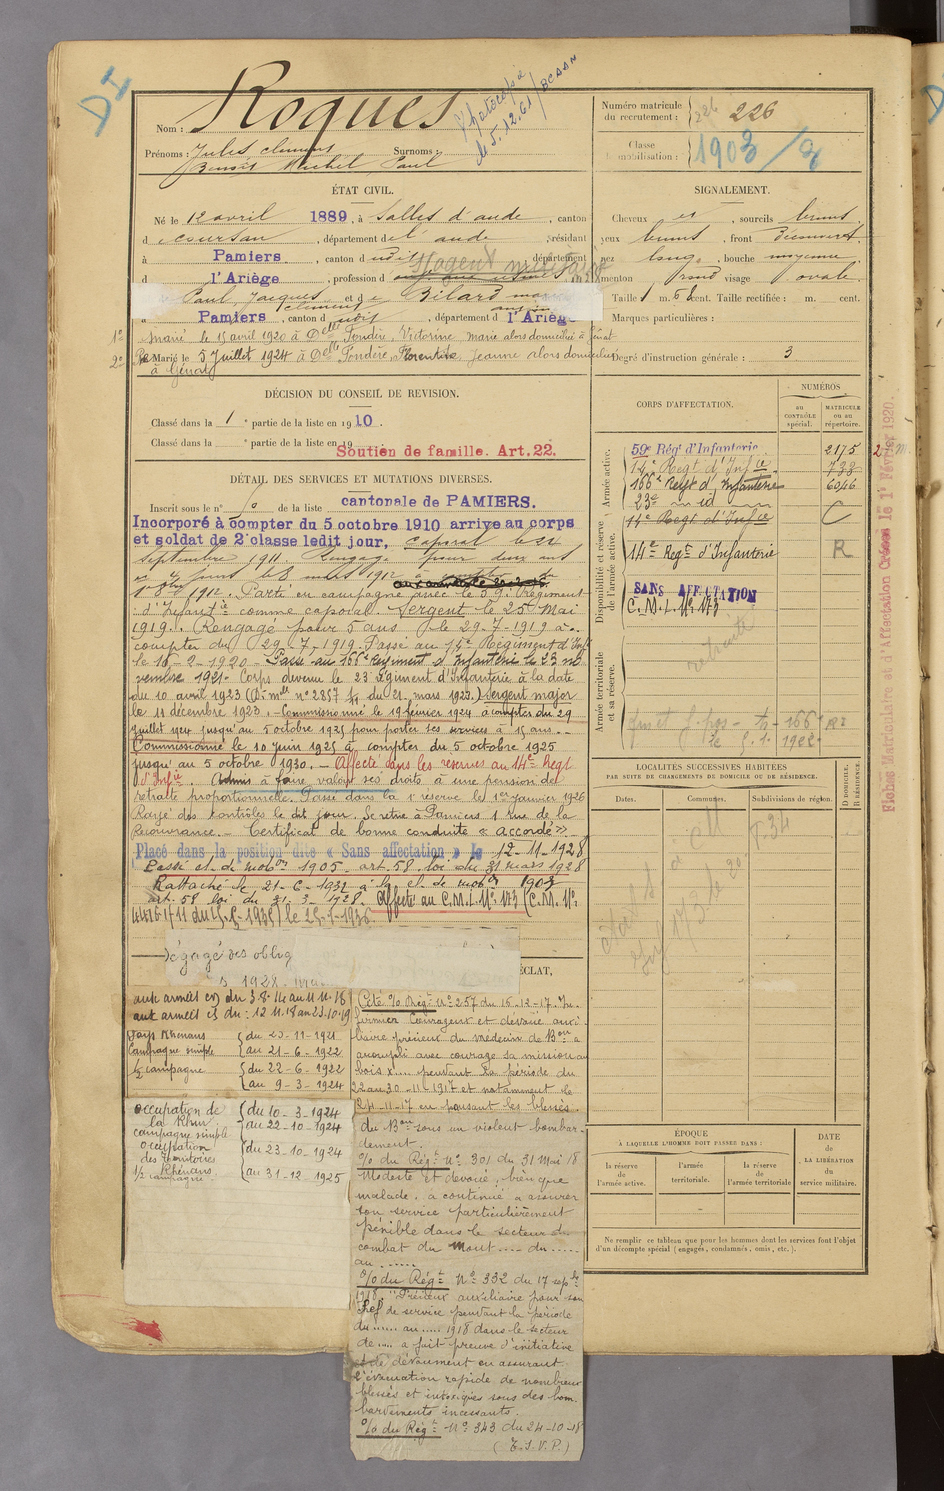 DI
Nom : Roques
Photocopie
le 5.12.61 / BCAAN
Prénoms : Jules Clément Surnoms :
Benoit Michel Paul
Numéro matricule
du recrutement : 226 226
Classe
de mobilisation : 1903
ÉTAT CIVIL.
Né le 12 avril 1889, à Salles d'aude, canton
de coursan, département de l'aude, résidant
à Pamiers, canton d udit, département
d l'Ariège, profession d
Paul, Jacques et d e Bilard
clément
Pamiers, canton d udit, département d l'Ariège
1° marié le 15 avril 1920 à Delle Fondère, Victorine Marie alors domiciliée à Génat
2° Re Marié le 5 Juillet 1924 à Delle Fondère, Florentine Jeanne alors domiciliée
à Génat
SIGNALEMENT.
Cheveux et, sourcils bruns
yeux bruns, front Découvert
nez long, bouche moyenne
menton rond visage ovale
Taille 1 m. 68 cent. Taille rectifiée : m. cent.
Marques particulières :
Degré d'instruction générale : 3
DÉCISION DU CONSEIL DE REVISION.
Classé dans la 1e partie de la liste en 1910.
Classé dans la e partie de la liste en 19
Soutien de famille. Art. 22.
DÉTAIL DES SERVICES ET MUTATIONS DIVERSES.
Inscrit sous le n° 50 de la liste cantonale de PAMIERS.
Incorporé à compter du 5 octobre 1910 arrivé au corps
et soldat de 2e classe ledit jour, caporal le 21
Septembre 1911. Rengagé pour deux ans
le 8 mars 1912 à compter du
1912. Parti en campagne avec le 59e Régiment
d'Infie comme caporal. Sergent le 25 Mai
1919. Rengagé pour 5 ans le 29-7-1919 à
compter du 29-7-1919. Passé au 14e Régiment d'Inf
le 16-2-1920 - Passé au 166e Régiment d'Infanterie le 23 no
vembre 1921. Corps devenu le 23e Régiment d'Infanterie à la date
du 10 avril 1923 (D. mlle n° 2857 1/11 du 21 mars 1923.) Sergent major
le 11 décembre 1923. - Commissionné le 19 février 1924 à compter du 29
Juillet 1924 jusqu'au 5 octobre 1925 pour porter ses services à 15 ans. -
Commissionné le 10 Juin 1925 à compter du 5 octobre 1925
jusqu'au 5 octobre 1930. - Affecté dans les réserves au 14e Regt
d'Infie. Admis à faire valoir ses droits à une pension de
retraite proportionnelle. Passé dans la 1e réserve le 1er janvier 1926
Rayé des contrôles le dit jour. Se retire à Pamiers 1 rue de la
Recouvrance. - Certificat de bonne conduite « accordé ».
Placé dans la position dite « Sans affectation » le 12-11-1928
Passé cl. de mobon 1905. art. 58. loi du 31 mars 1928
Rattaché le 21-6-1932 à la cl. de mobon 1903
art. 58 loi du 31-3-1928. Affecté au C.M.I. N° 173 (C.M. N°
Dégagé des oblig
1928.
ÉCLAT,
CORPS D'AFFECTATION.
NUMÉROS
au CONTRÔLE spécial.
MATRICULE ou au répertoire.
Armée active.
59e Régt d'Infanterie 2175
14e Regt d'Infie 733
166e Regt d'Infanterie 6046
23e — id —
Disponibilité et réserve de l'armée active.
14e Regt d'Infie C
14e Regt d'Infanterie R
SANS AFFECTATION
C.M.I. N° 173
Armée territoriale et sa réserve.
retraité
Fiches Matriculaire et d'Affectation Créées le 1er Février 1920.
LOCALITÉS SUCCESSIVES HABITÉES
PAR SUITE DE CHANGEMENTS DE DOMICILE OU DE RÉSIDENCE.
Dates. Communes. Subdivisions de région. D DOMICILE. R RÉSIDENCE.
aux armées en du 3.8.14 au 11.11.18
aux armées es du : 12.11.18 au 23.10.19
Pays Rhénans
Campagne simple { du 23-11-1921
au 21-6-1922
1/2 campagne { du 22-6-1922
au 9-3-1924
Occupation de
la Rhur
campagne simple { du 10-3-1924
au 22-10-1924
occupation
des territoires
Rhénans
1/2 campagne { du 23-10-1924
au 31-12-1925
Cité o/o Régt N° 257 du 15-12-17. In
firmier Courageux et dévoué auxi
liaire précieux du médecin de Bon a
accompli avec courage sa mission au
bois x.... pendant la période du
22 au 30-11-1917 et notamment le
24-11-17 en pansant les blessés
du Bon sous un violent bombar
dement.
o/o du Régt N° 301 du 31 Mai 18
Modeste et dévoué, bien que
malade, a continué a assurer
son service particulièrement
pénible dans le secteur du
combat du Mont.... du.....
au ......
o/o du Régt N° 332 du 17 sepbre
1918. "Précieux auxiliaire pour son
Chef de service pendant la période
du...... au..... 1918 dans le secteur
de.... a fait preuve d'initiative
et de dévouement en assurant
l'évacuation rapide de nombreux
blessés et intoxiqués sous des bom
bardements incessants.
o/o du Régt N° 343 du 24-10-18
(T.S.V.P.)
ÉPOQUE
À LAQUELLE L'HOMME DOIT PASSER DANS :
la réserve de l'armée active.
l'armée territoriale.
la réserve de l'armée territoriale
DATE de LA LIBÉRATION du service militaire.
Ne remplir ce tableau que pour les hommes dont les services font l'objet
d'un décompte spécial (engagés, condamnés, omis, etc.).